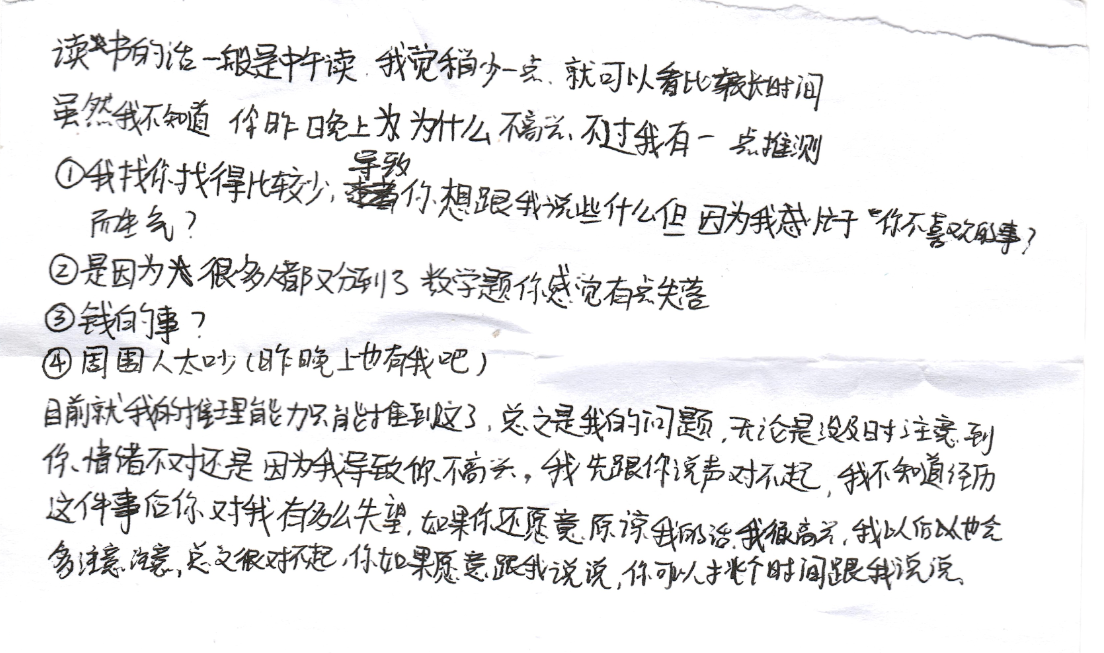 读书的话一般是中午读 我觉稍少一点、就可以看比较长时间
虽然我不知道 你昨日晚上为为什么不高兴、不过我有一点推测
①我找你找得比较少,导致你想跟我说些什么但因为我感 于“你不喜欢的事?
而生气?
②是因为 很多人都又分到了数学题你感觉有点失落
③钱的事?
④周围人太吵(昨晚上也有我吧)
目前就我的推理能力只能推到这了,总之是我的问题,无论是没及时注意到
你情绪不对还是因为我导致你不高兴。我先跟你说声对不起,我不知道经历
这件事后你对我有多么失望,如果你还愿意原谅我的话,我很高兴,我以后以也会
多注意注意,总之很对不起,你如果愿意跟我说说,你可以 个时间跟我说说、